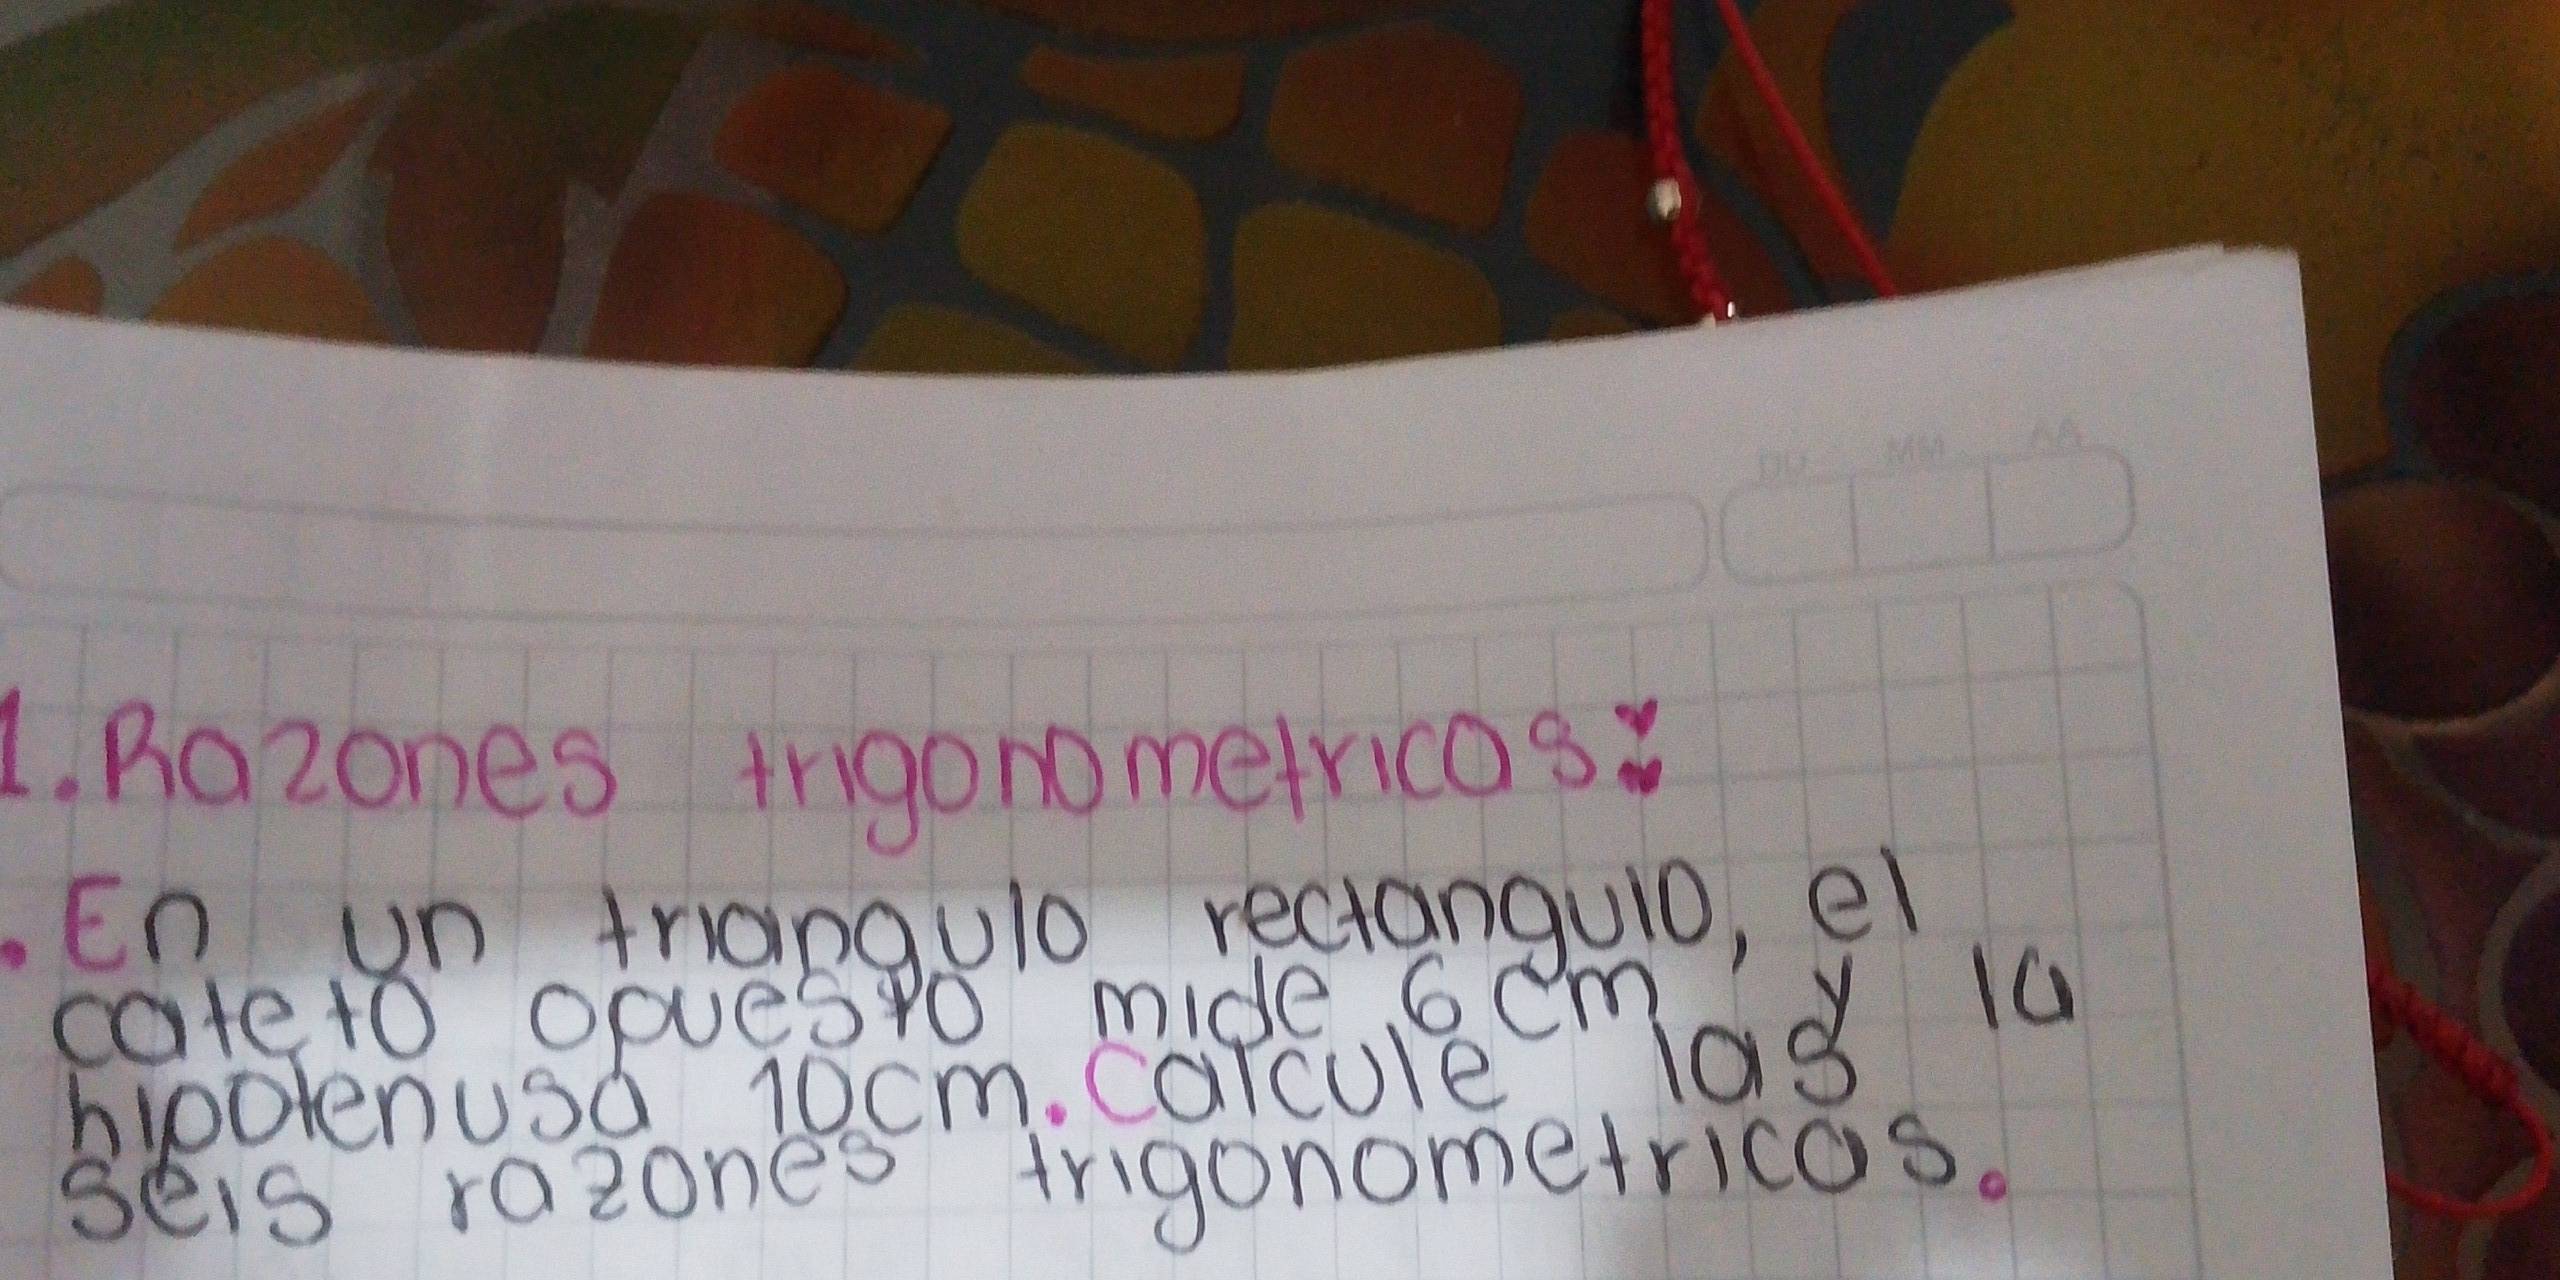 DD MM AA
1. Razones trigonometricas:
. En un triangulo rectangulo, el
cateto opuesto mide 6cm y la
hipotenusa 10cm. Calcule las
seis razones trigonometricas.